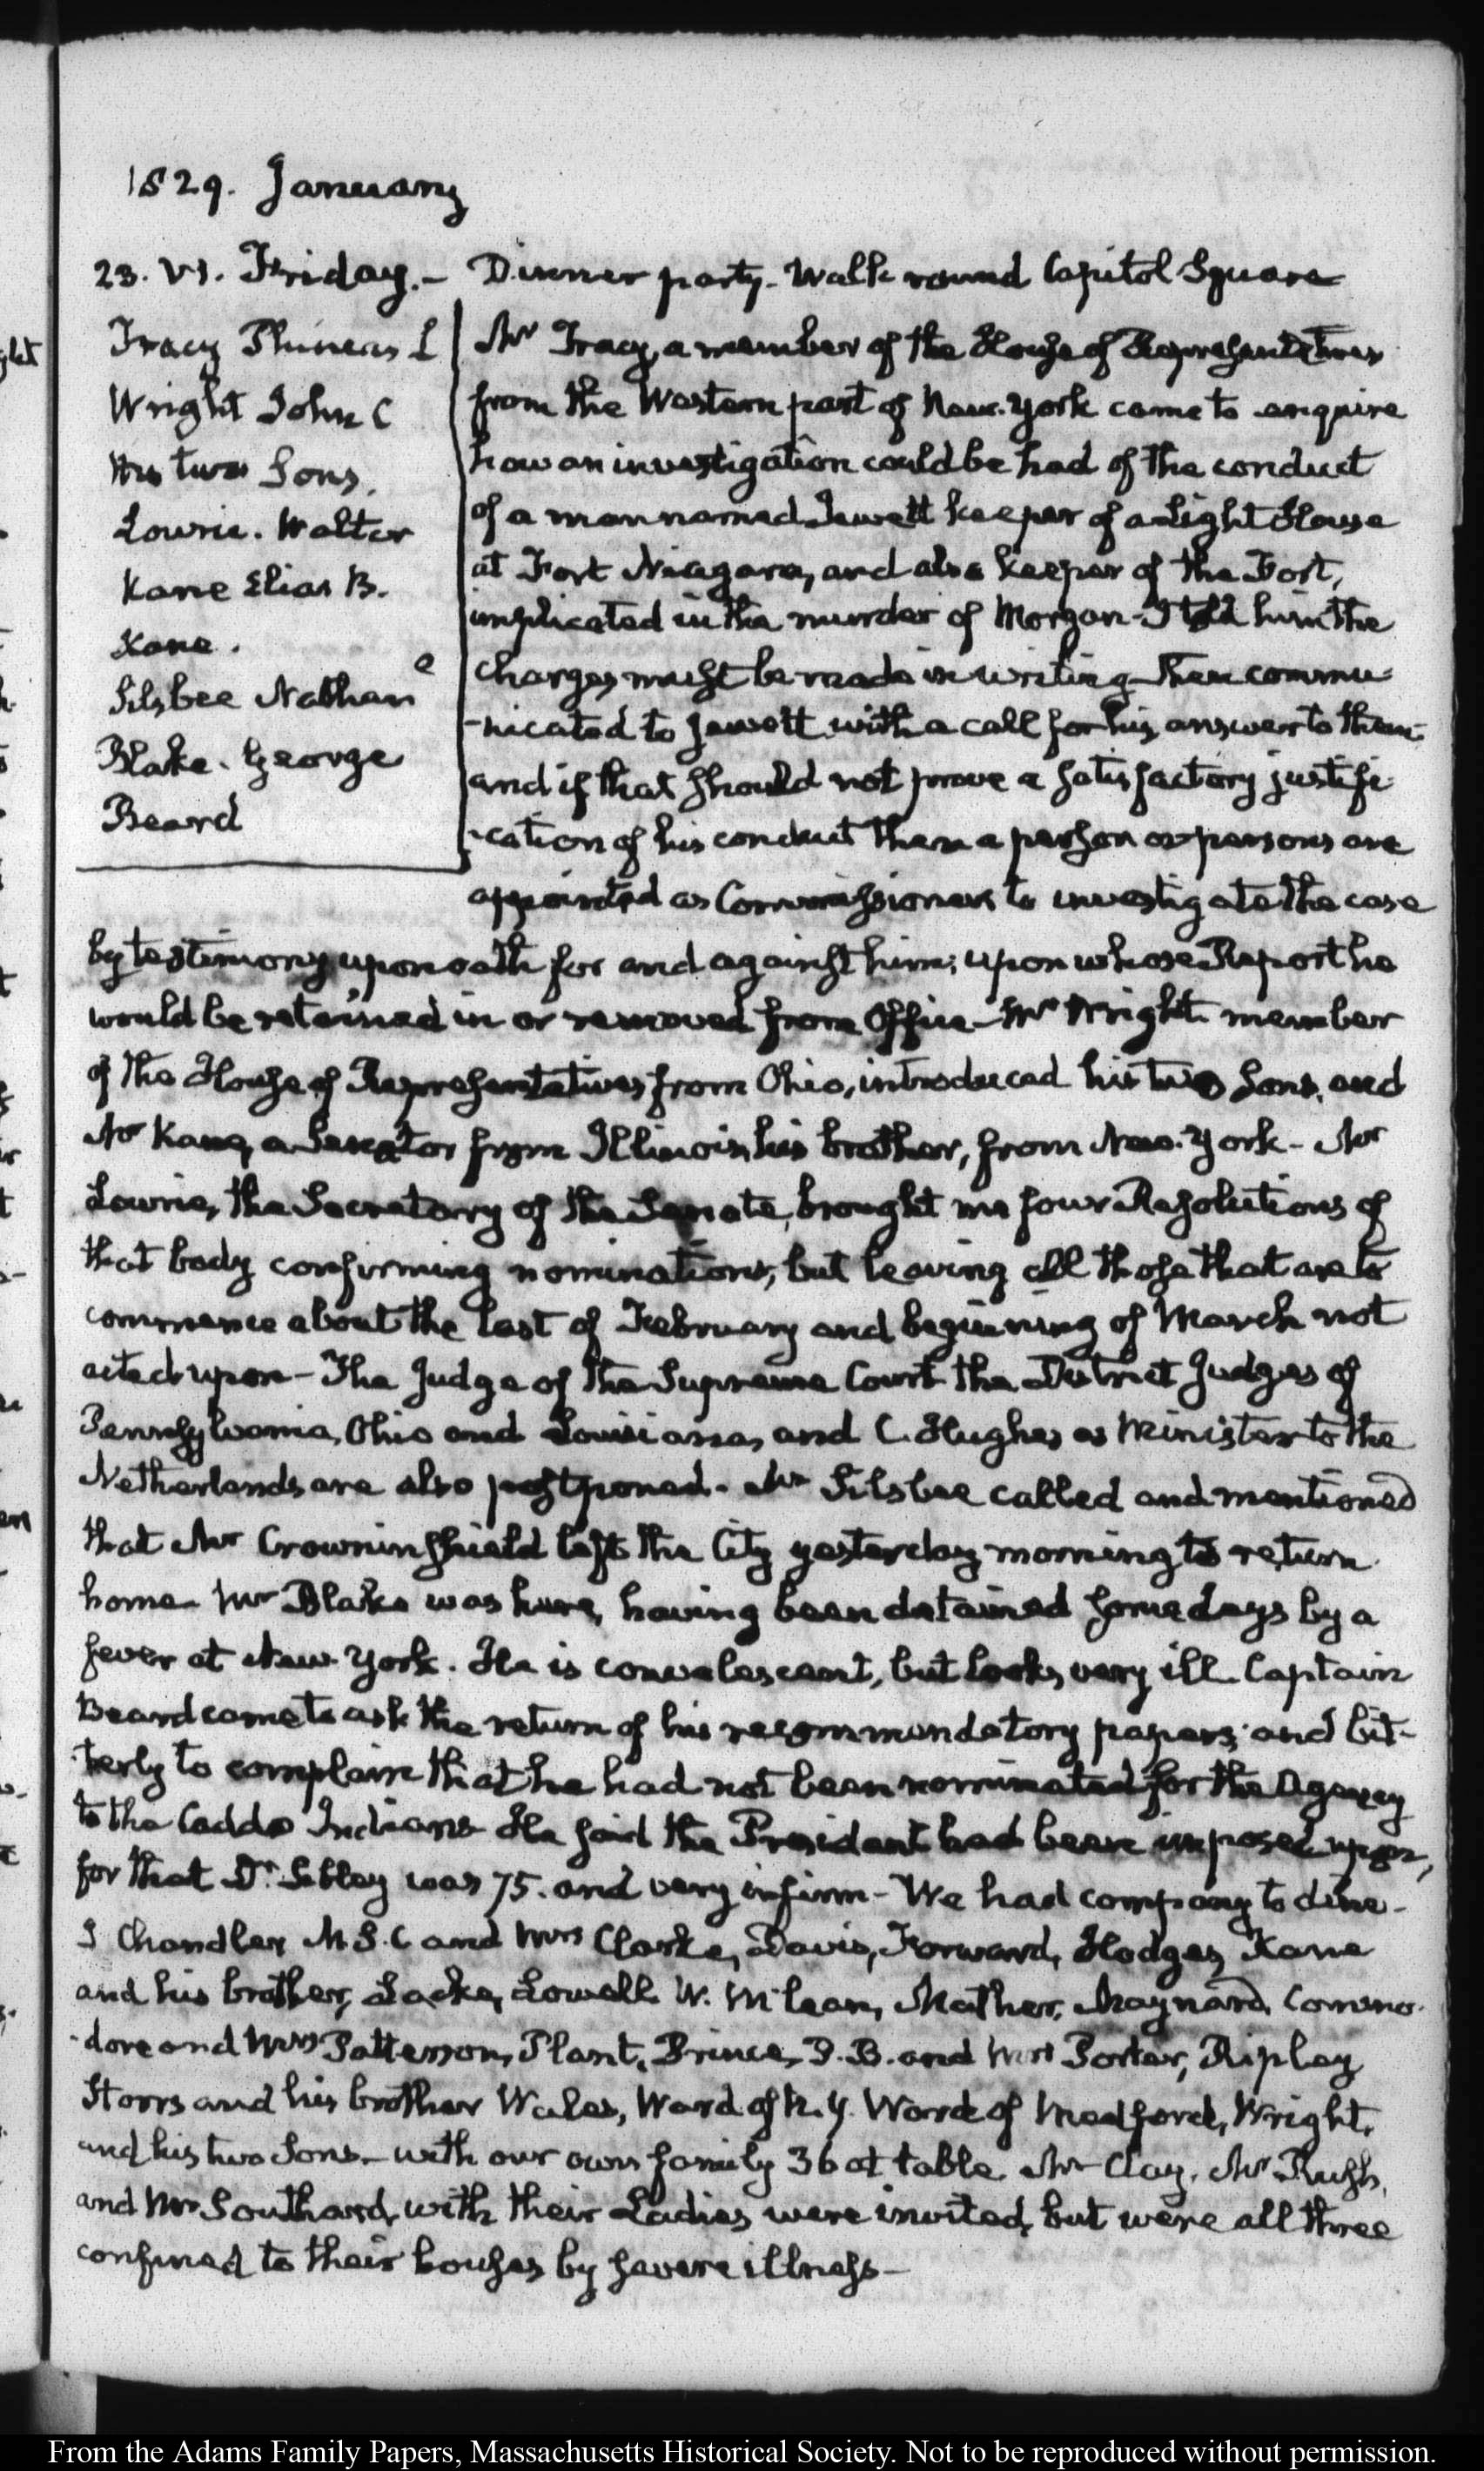 1829. January
23. VI. Friday. – Dinner party. Walk round Capitol Square
Tracy Phineas L
Wright John C
His two Sons.
Lowrie. Walter
Kane Elias K.
Kane.
Silsbee Nathan e
Blake. George
Beard
Mr Tracy, a member of the House of Representatives
from the Western part of New-York came to enquire
how an investigation could be had of the conduct
of a man named Jewett keeper of a Light House
at Fort Niagara, and also keeper of the Fort,
implicated in the murder of Morgan – I told him the
charges must be made in writing – then commu-
-nicated to Jewett with a call for his answer to them-
and if that should not prove a satisfactory justifi-
-cation of his conduct then a person or persons are
appointed as Commissioners to investigate the case
by testimony upon oath for and against him; upon whose Report he
would be retained in or removed from Office – Mr Wright member
of the House of Representatives from Ohio, introduced his two Sons, and
Mr Kane, a Senator from Illinois, his brother, from New-York – Mr
Lowrie, the Secretary of the Senate, brought me four Resolutions of
that body confirming nominations, but leaving all those that are to
commence about the last of February and beginning of March not
acted upon – The Judge of the Supreme Court the District Judges of
Pennsylvania, Ohio and Louisiana, and C. Hughes as Minister to the
Netherlands are also postponed. Mr Silsbee called and mentioned
that Mr Crowninshield left the City yesterday morning to return
home – Mr Blake was here, having been detained some days by a
fever at New-York. He is convalescent, but looks very ill. Captain
Beard came to ask the return of his recommendatory papers; and bit-
-terly to complain that he had not been nominated for the Agency
to the Caddo Indians – He said the President had been imposed upon,
for that Dr. Sibley was 75. and very infirm – We had company to dine –
J Chandler, M.S.C and Mrs Clarke, Davis, Forward, Hodges, Kane
and his brother, Locke, Lowell. W. McLean, Mather, Maynard, Commo-
-dore and Mrs Patterson, Plant, Prince, P.B. and Mrs Porter, Ripley
Storrs and his brother Wales, Ward of N.Y. Ward of Medford, Wright,
and his two Sons – with our own family 36 at table. Mr Clay, Mr Rush,
and Mr Southard, with their Ladies were invited, but were all three
confined to their houses by severe illness –
From the Adams Family Papers, Massachusetts Historical Society. Not to be reproduced without permission.